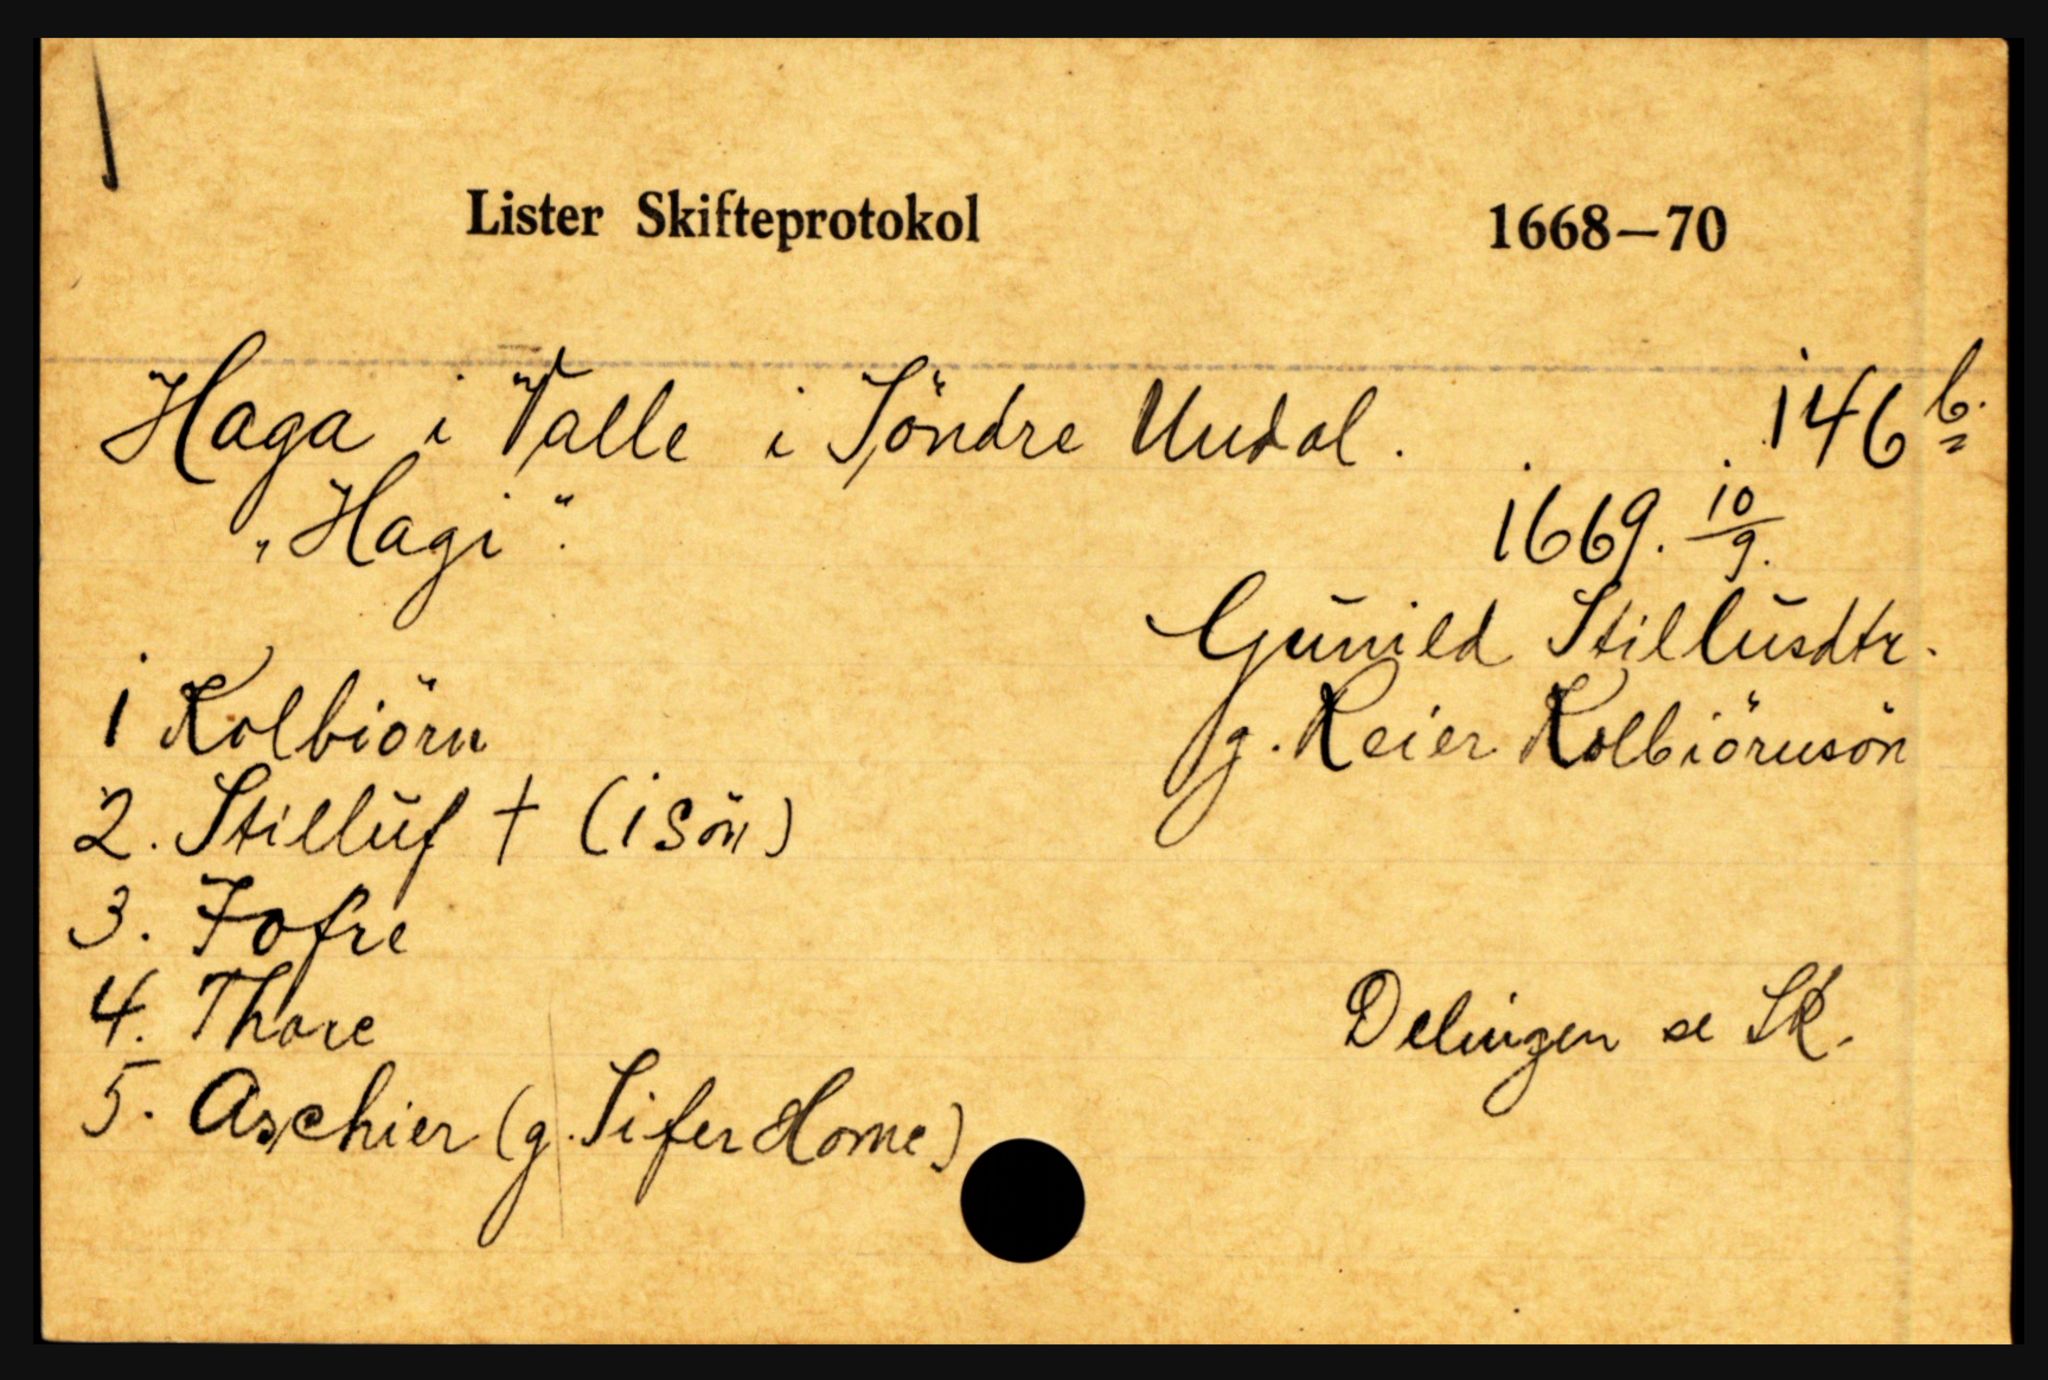 Lister Skifteprotokol 1668—70
Haga i Valle i Söndre Undal. 146 b.
„Hagi“. 1669. 10/9.
Gunild Stillusdtr.
1 Kolbiörn g. Reier Kolbiörnsön
2. Stilluf † (1 sön)
3. Tofre
4. Thore Delingen se Sk.
5. Aschier (g. Sifer Home)